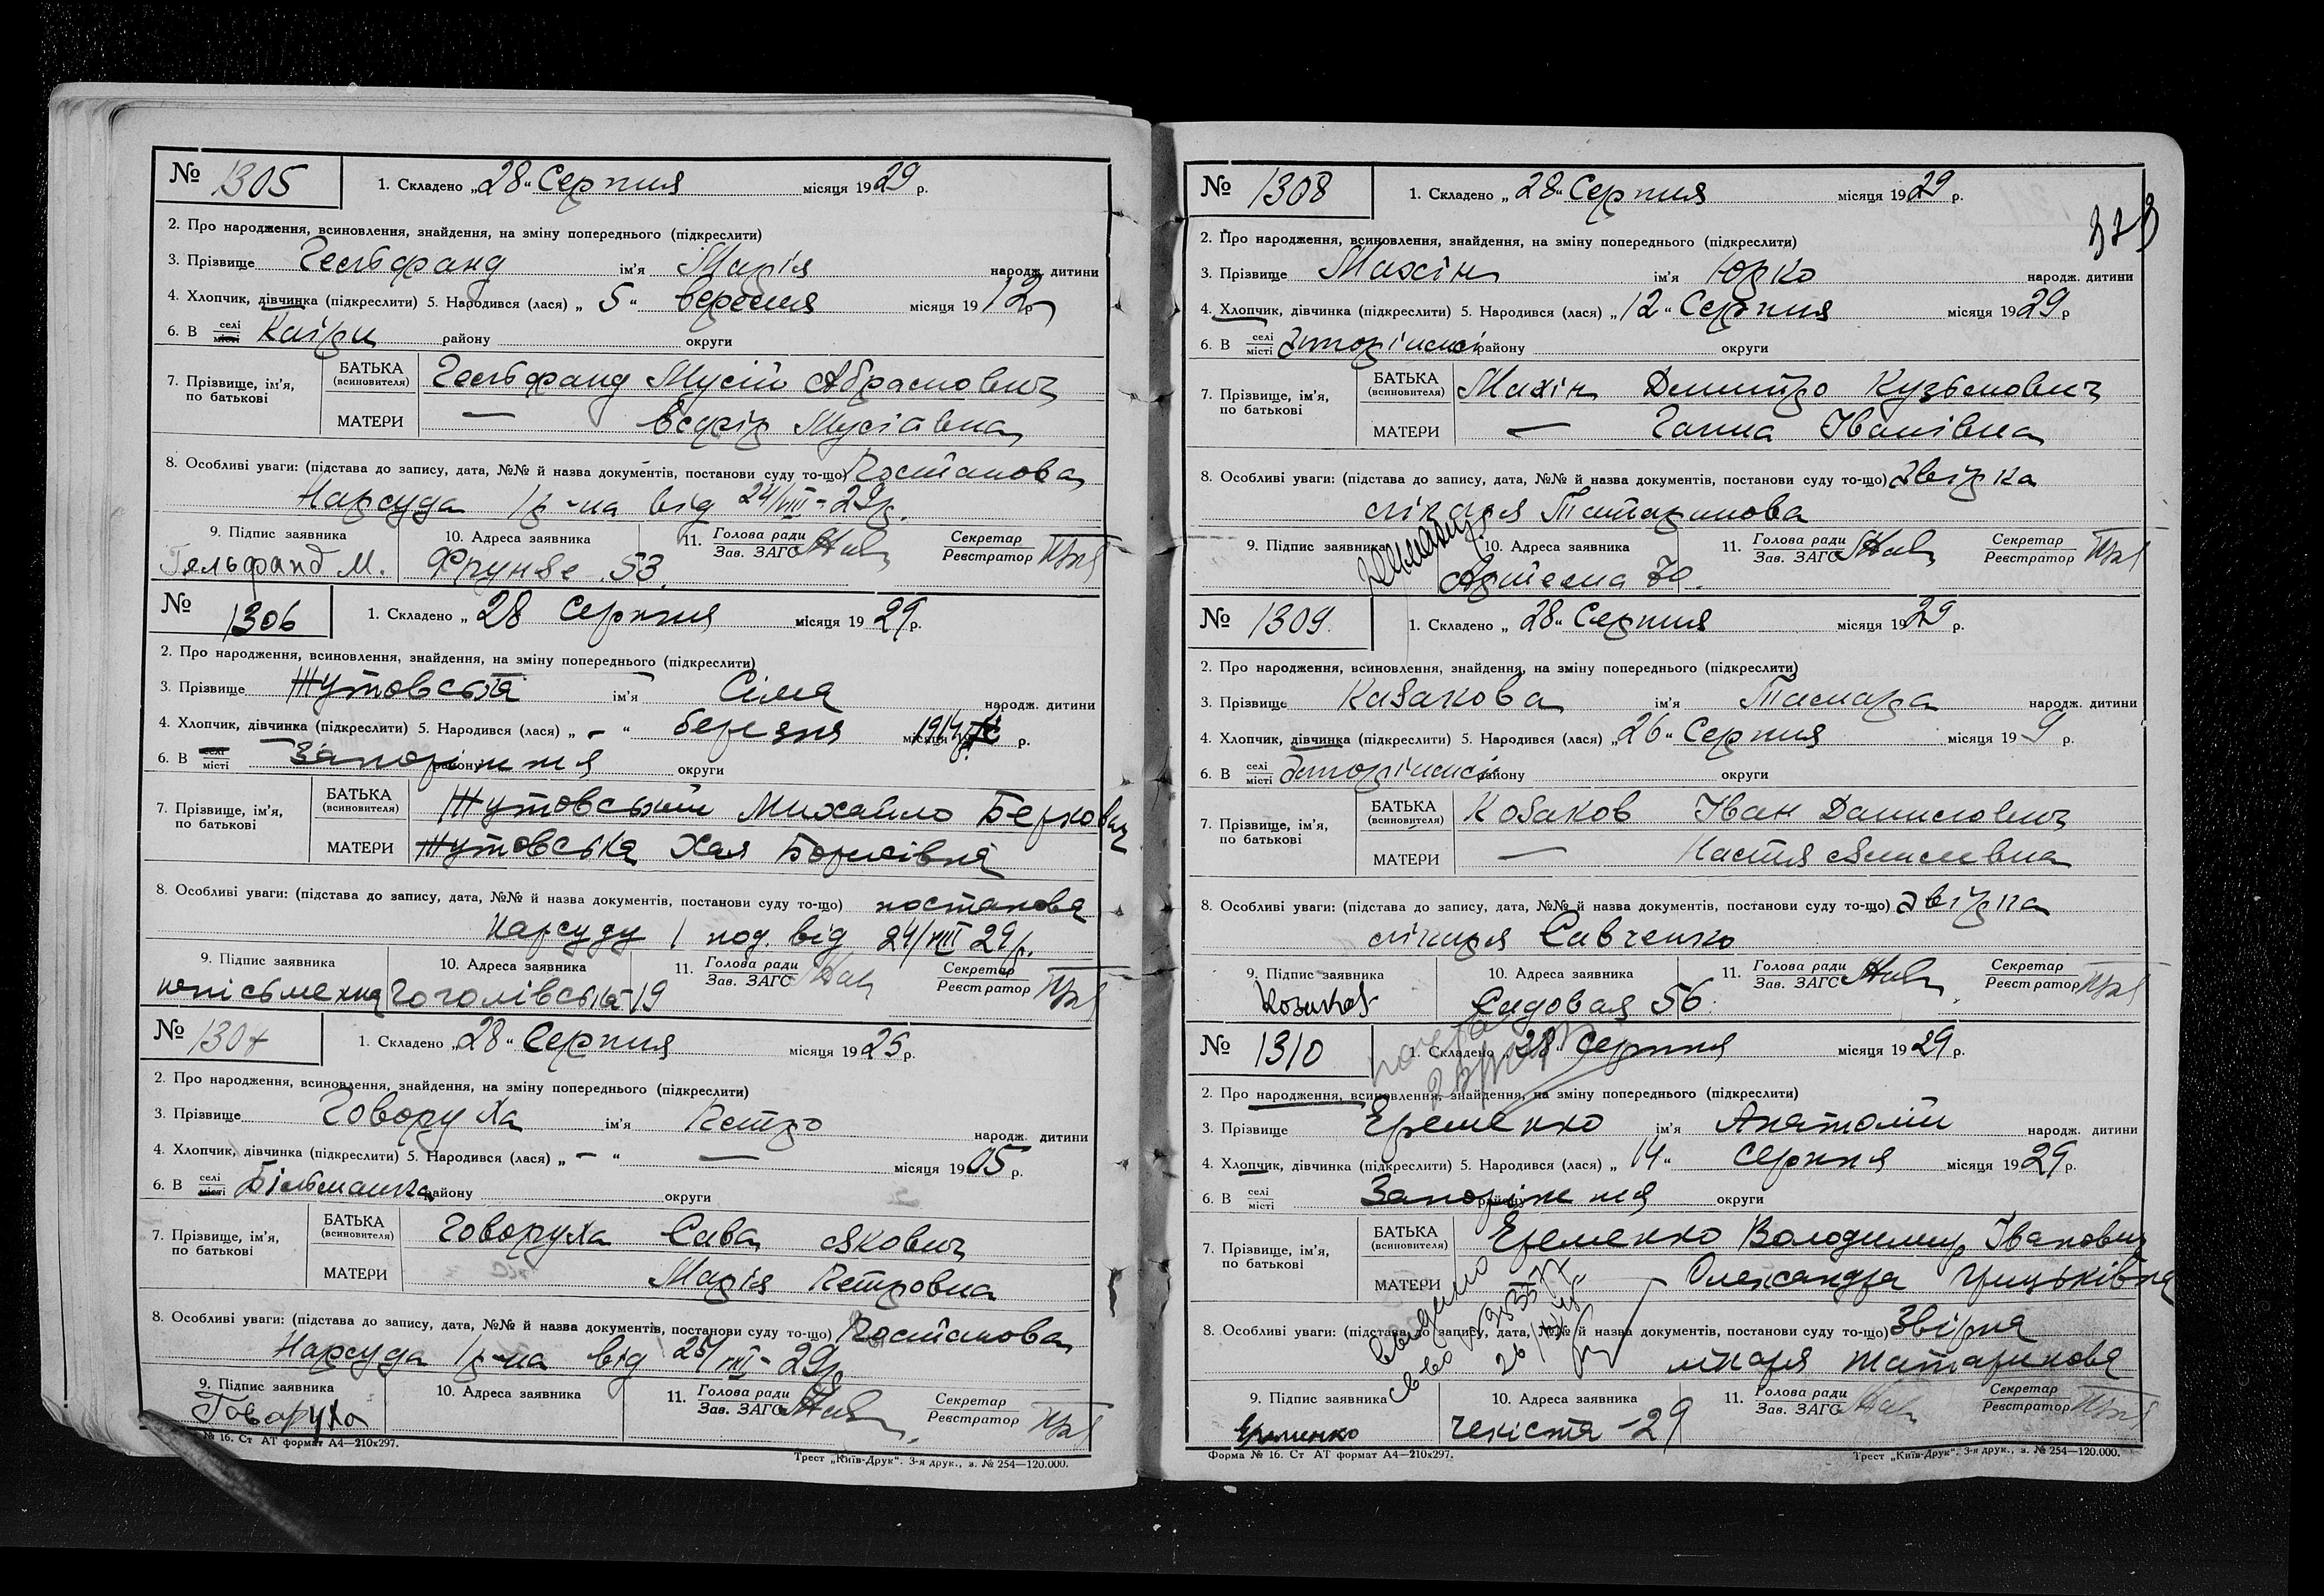 № 1305
1. Складено „28“ Серпня місяця 1929 р.
2. Про народження, всиновлення, знайдення, на зміну попереднього (підкреслити)
3. Прізвище Гельфанд ім'я Марія народж. дитини
4. Хлопчик, дівчинка (підкреслити) 5. Народився (лася) „5“ вересня місяця 1912 р
6. В селі місті Каїри району округи
7. Прізвище, ім'я, по батькові БАТЬКА (всиновителя) Гельфанд Мусій Абрамович
МАТЕРИ — Есфір Мусіївна
8. Особливі уваги: (підстава до запису, дата, №№ й назва документів, постанови суду то-що) Постанова
Нарсуда 1 р-на від 24/VIII-29р.
9. Підпис заявника 10. Адреса заявника 11. Голова ради Зав. ЗАГС Секретар Реєстратор
Гельфанд М. Фрунзе 53
№ 1306
1. Складено „28 Серпня місяця 1929 р.
2. Про народження, всиновлення, знайдення, на зміну попереднього (підкреслити)
3. Прізвище Жутовська ім'я Сіма народж. дитини
4. Хлопчик, дівчинка (підкреслити) 5. Народився (лася) „ – “ березня місяця 1914 р.
6. В селі місті Запоріжжя району округи
7. Прізвище, ім'я, по батькові БАТЬКА (всиновителя) Жутовський Михайло Беркович
МАТЕРИ Жутовська Хая Борисівна
8. Особливі уваги: (підстава до запису, дата, №№ й назва документів, постанови суду то-що) постанова
Нарсуду 1 від 24/VIII 29р.
9. Підпис заявника 10. Адреса заявника 11. Голова ради Зав. ЗАГС Секретар Реєстратор
неписьменна Гоголівська 19
№ 1307
1. Складено „28“ Серпня місяця 1929 р.
2. Про народження, всиновлення, знайдення, на зміну попереднього (підкреслити)
3. Прізвище Говоруха ім'я Петро народж. дитини
4. Хлопчик, дівчинка (підкреслити) 5. Народився (лася) „ – “ — місяця 1905 р.
6. В селі місті Більманка району округи
7. Прізвище, ім'я, по батькові БАТЬКА (всиновителя) Говоруха Сава Якович
МАТЕРИ Марія Петровна
8. Особливі уваги: (підстава до запису, дата, №№ й назва документів, постанови суду то-що) Постанова
Нарсуда 1 р-на від 25/VIII-29р
9. Підпис заявника 10. Адреса заявника 11. Голова ради Зав. ЗАГС Секретар Реєстратор
Говоруха
№ 16. Ст АТ формат А4—210х297.
Трест „Київ-Друк“. 3-я друк., з. № 254—120.000.
№ 1308
1. Складено „28“ Серпня місяця 1929 р.
2. Про народження, всиновлення, знайдення, на зміну попереднього (підкреслити)
3. Прізвище Махін ім'я Юрко народж. дитини
4. Хлопчик, дівчинка (підкреслити) 5. Народився (лася) „12“ Серпня місяця 1929 р
6. В селі місті Запоріжжі району округи
7. Прізвище, ім'я, по батькові БАТЬКА (всиновителя) Махін Дмитро Кузьмович
МАТЕРИ — Ганна Іванівна
8. Особливі уваги: (підстава до запису, дата, №№ й назва документів, постанови суду то-що) Звірка
лікаря Татаринова
9. Підпис заявника 10. Адреса заявника 11. Голова ради Зав. ЗАГС Секретар Реєстратор
Артема 70.
№ 1309
1. Складено „28“ Серпня місяця 1929 р.
2. Про народження, всиновлення, знайдення, на зміну попереднього (підкреслити)
3. Прізвище Казакова ім'я Тамара народж. дитини
4. Хлопчик, дівчинка (підкреслити) 5. Народився (лася) „26“ Серпня місяця 19 9 р.
6. В селі місті Запоріжжі району округи
7. Прізвище, ім'я, по батькові БАТЬКА (всиновителя) Козаков Іван Данилович
МАТЕРИ — Настя
8. Особливі уваги: (підстава до запису, дата, №№ й назва документів, постанови суду то-що) Звірка
лікаря Савченко
9. Підпис заявника 10. Адреса заявника 11. Голова ради Зав. ЗАГС Секретар Реєстратор
Козаков Садовая 56
№ 1310
1. Складено „28“ Серпня місяця 1929 р.
2. Про народження, всиновлення, знайдення, на зміну попереднього (підкреслити)
3. Прізвище Єременко ім'я Анатолій народж. дитини
4. Хлопчик, дівчинка (підкреслити) 5. Народився (лася) „14“ Серпня місяця 1929 р.
6. В селі місті Запоріжжя району округи
7. Прізвище, ім'я, по батькові БАТЬКА (всиновителя) Єременко Володимир Іванович
МАТЕРИ — Олександра Грицьківна
8. Особливі уваги: (підстава до запису, дата, №№ й назва документів, постанови суду то-що) Звірка
лікаря Татаринова
9. Підпис заявника 10. Адреса заявника 11. Голова ради Зав. ЗАГС Секретар Реєстратор
Єременко Чекіста -29
Форма № 16. Ст АТ формат А4—210х297.
Трест „Київ-Друк“. 3-я друк., з. № 254—120.000.